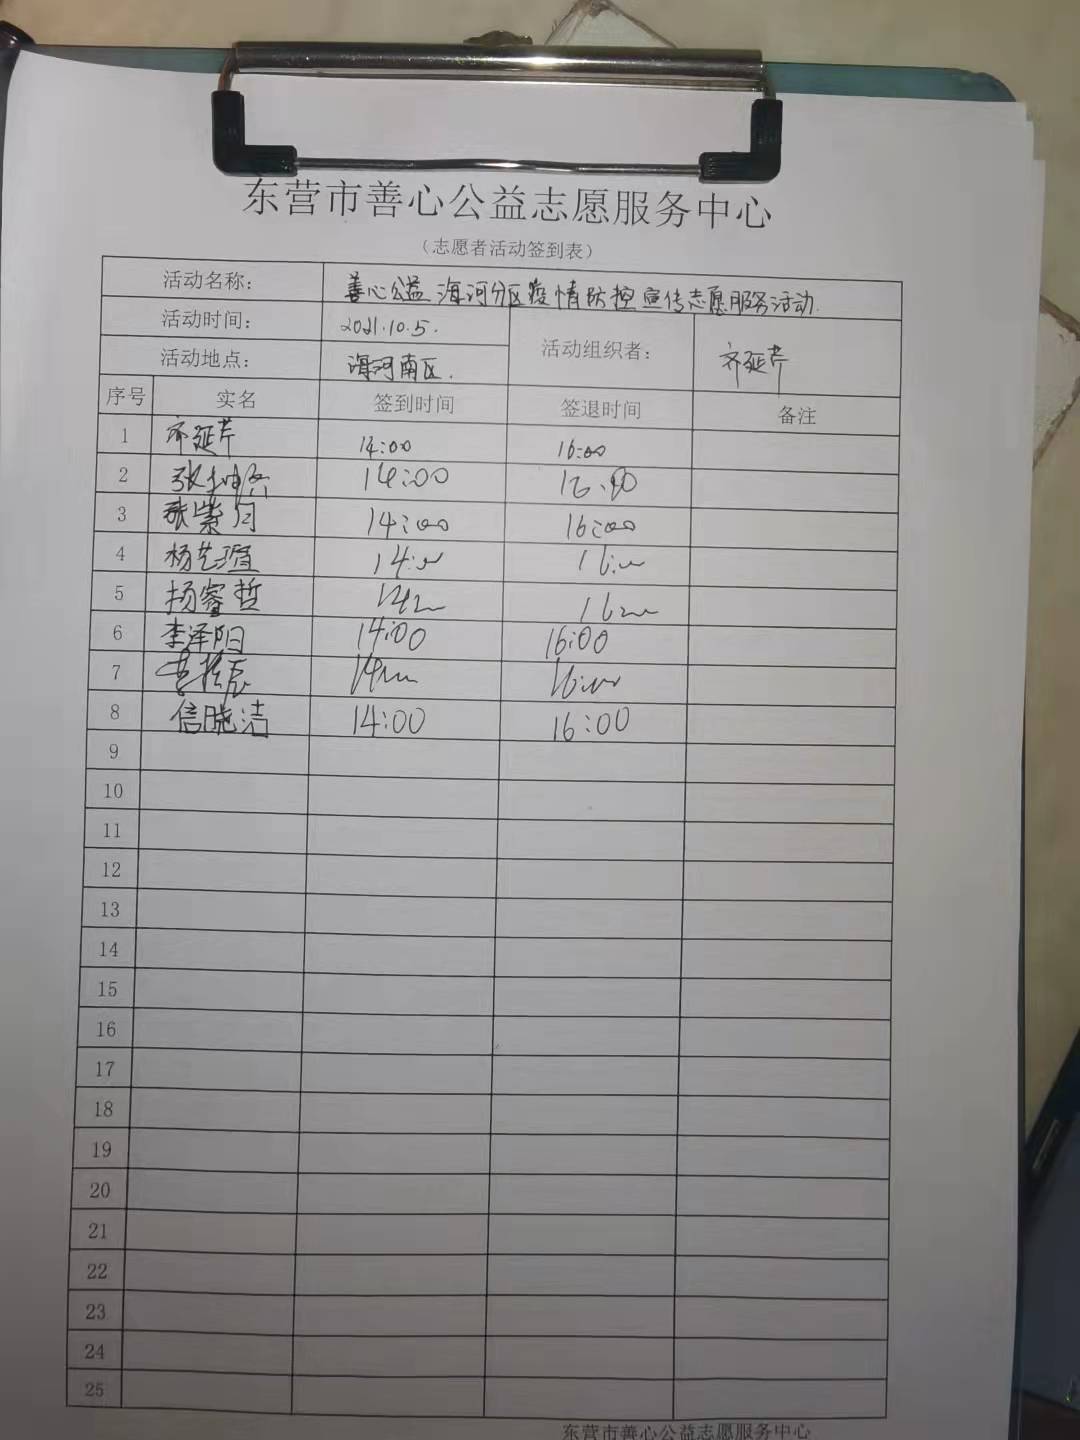 东营市善心公益志愿服务中心
（志愿者活动签到表）
活动名称： 善心公益海河分区疫情防控宣传志愿服务活动.
活动时间： 2021.10.5. 活动组织者： 齐延芹
活动地点： 海河南区.
序号 实名 签到时间 签退时间 备注
1 齐延芹 14:00 16:00
2 张 14:00 16:00
3 张紫 14:00 16:00
4 杨艺瑄 14:00 16:00
5 杨睿哲 14:00 16:00
6 李泽阳 14:00 16:00
7 14:00 16:00
8 信晓洁 14:00 16:00
9
10
11
12
13
14
15
16
17
18
19
20
21
22
23
24
25
东营市善心公益志愿服务中心